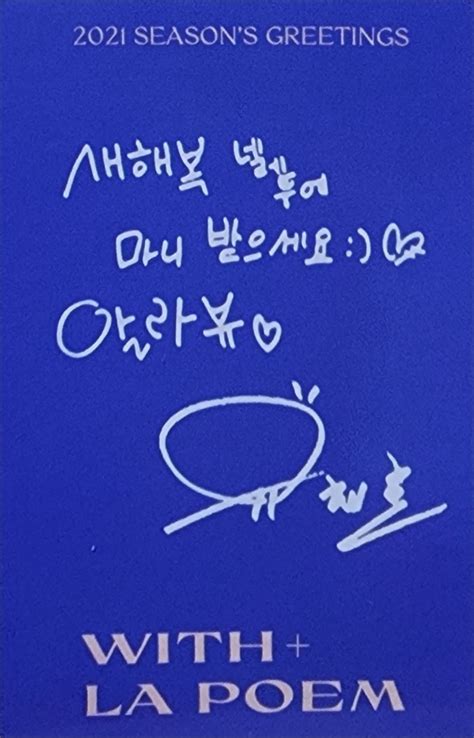 2021 SEASON'S GREETINGS
새해복
마니 받으세요 :)♡
알라뷰♡
유채훈
WITH+
LA POEM